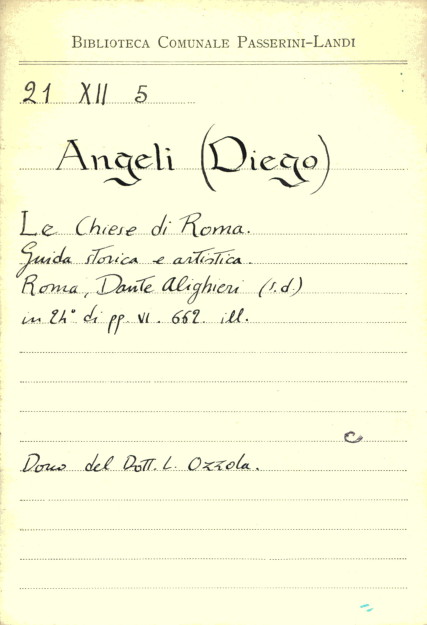 BIBLIOTECA COMUNALE PASSERINI-LANDI
21 XII 5
Angeli (Diego)
Le Chiese di Roma.
Guida storica e artistica.
Roma, Dante Alighieri (s.d.)
in 24° di pp. VI. 662. ill.
C
Dono del Dott. L. Ozzola.